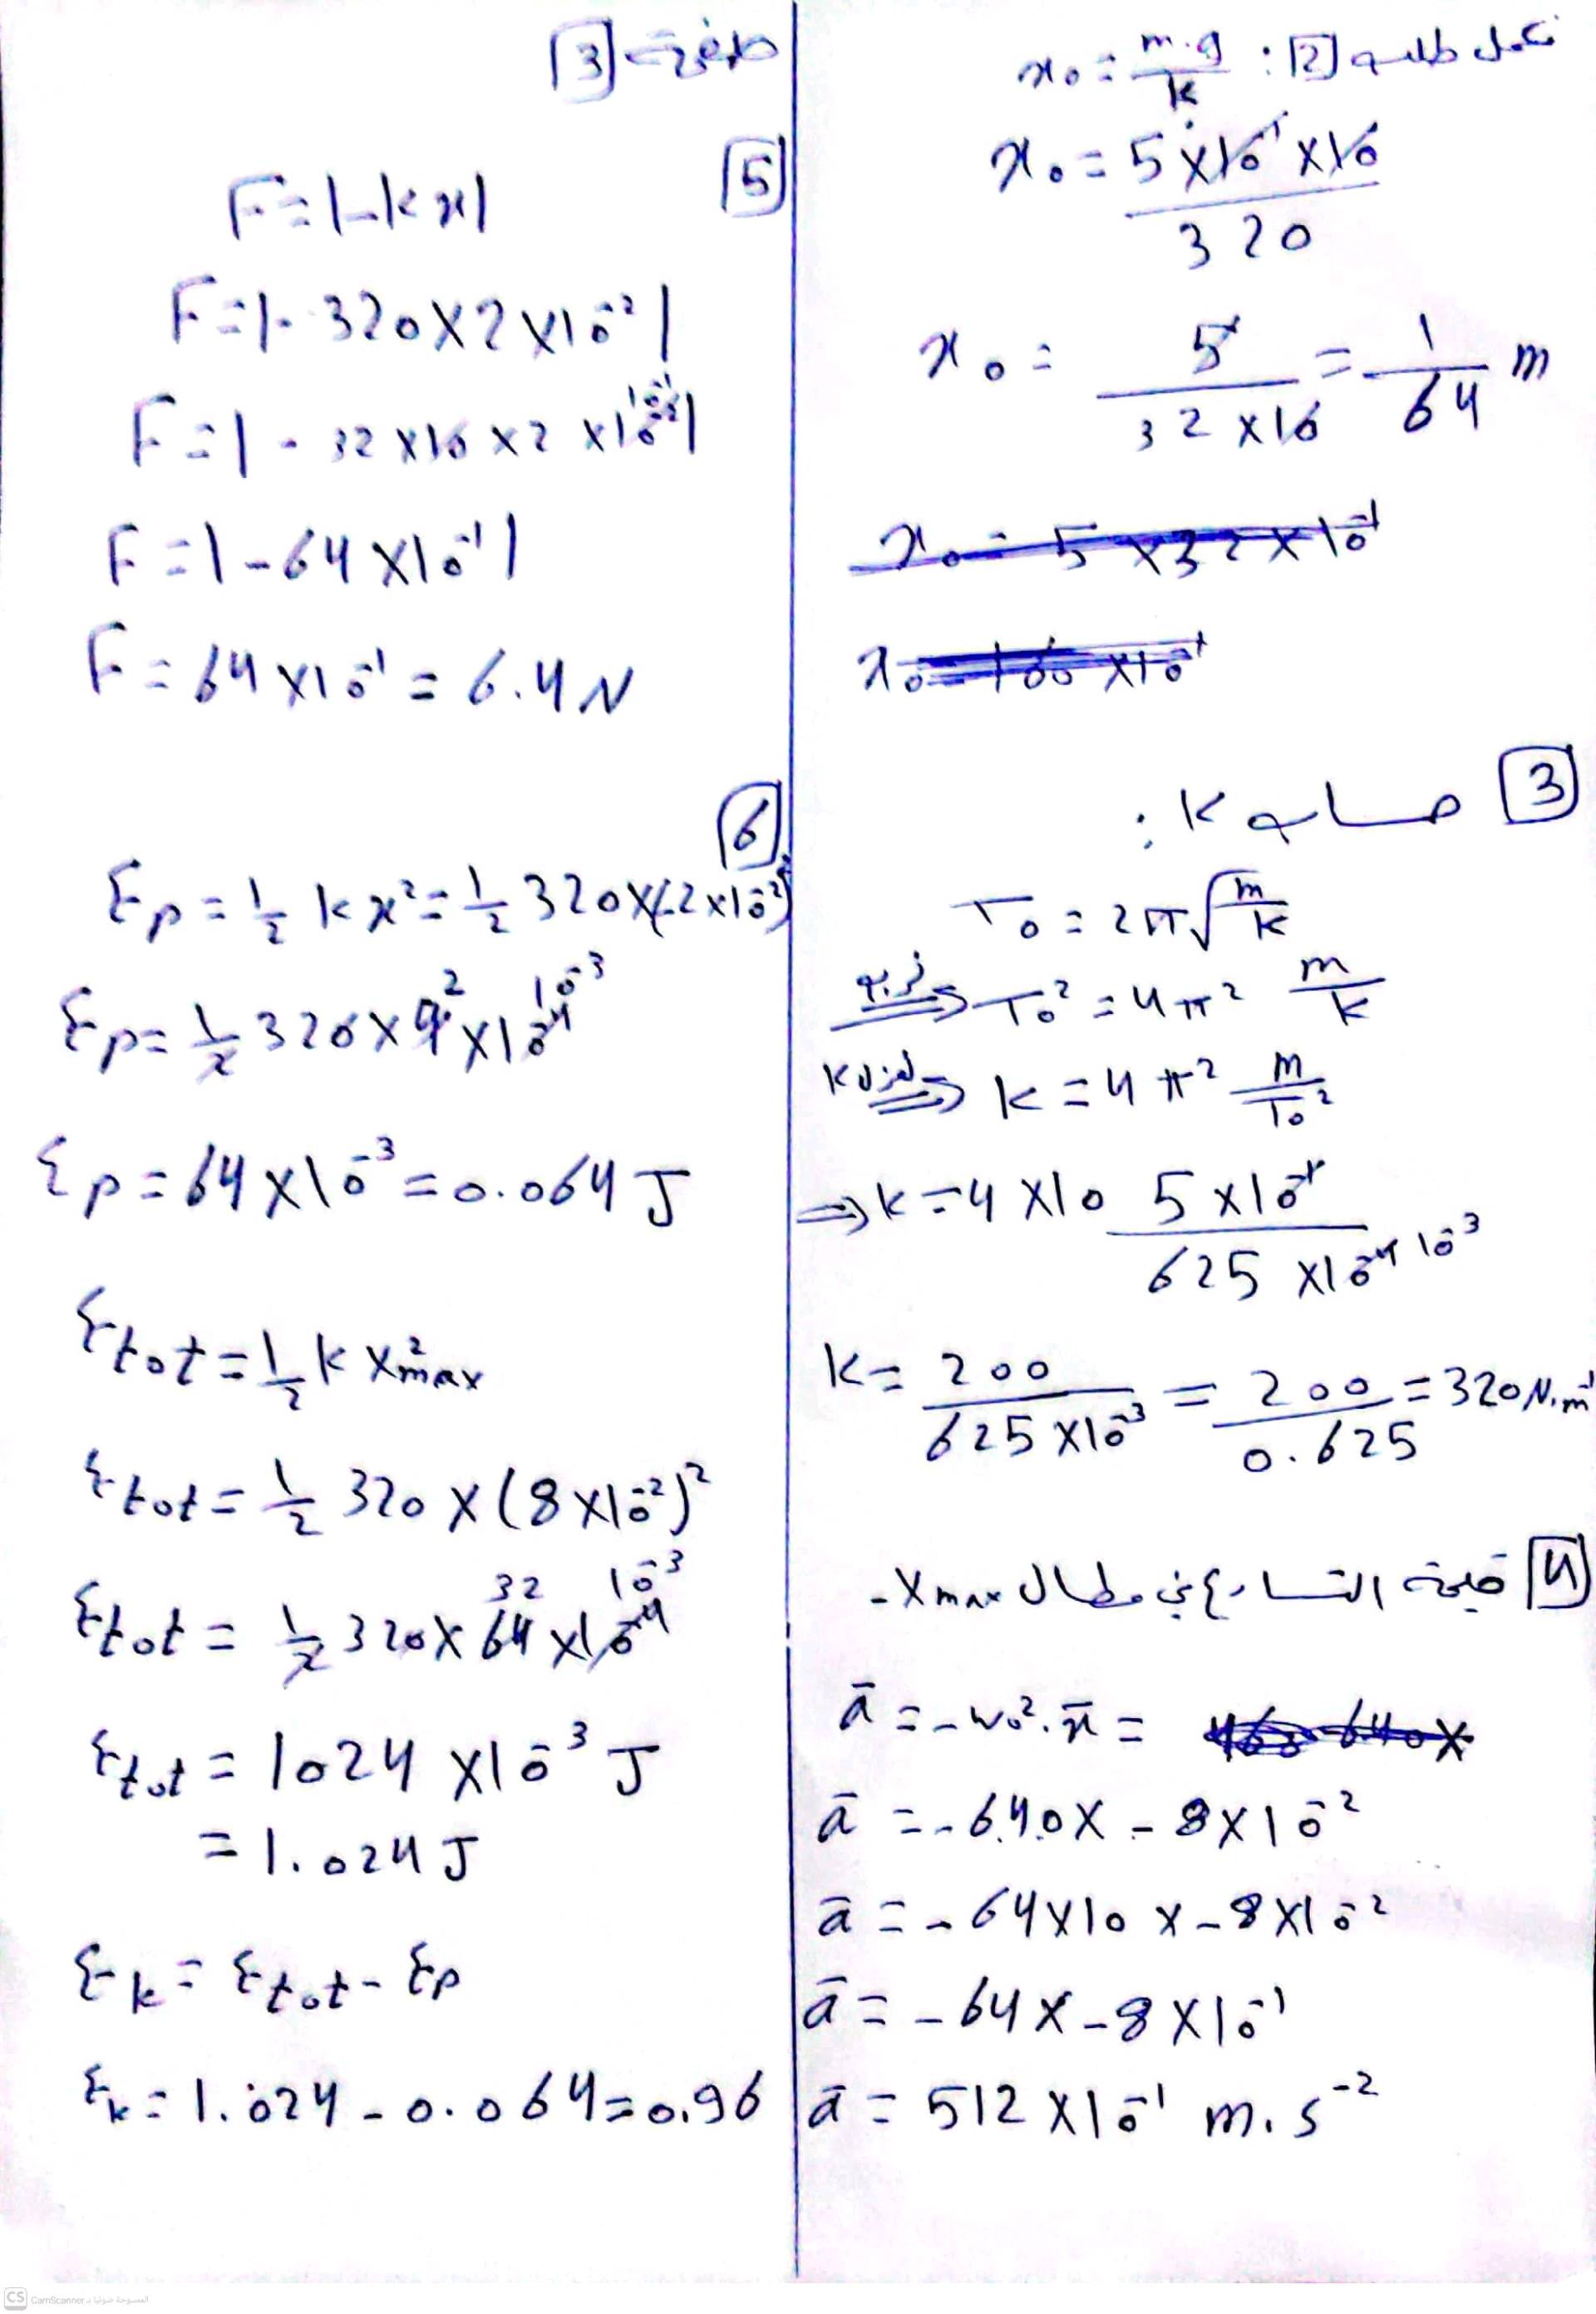 صفحة 3
نكمل طلب 2: x₀ = m.g / k
x₀ = 5×10⁻¹×10 / 320
x₀ = 5 / 32×10 = 1/64 m
x₀ = 5×32×10⁻¹
x₀ = 160×10⁻¹
3 حساب k:
T₀ = 2π√(m/k)
نربع ⇒ T₀² = 4π² m/k
نعزل k ⇒ k = 4π² m/T₀²
⇒ k = 4×10 5×10⁻¹ / 625×10⁻⁴ 10⁻³
k = 200 / 625×10⁻³ = 200 / 0.625 = 320 N.m⁻¹
4 قيمة التسارع في مطال -Xmax
ā = -ω₀².x̄ =
ā = -640×-8×10⁻²
ā = -64×10×-8×10⁻²
ā = -64×-8×10⁻¹
ā = 512×10⁻¹ m.s⁻²
5
F = |-kx|
F = |-320×2×10⁻²|
F = |-32×10×2×10⁻²| 10⁻¹
F = |-64×10⁻¹|
F = 64×10⁻¹ = 6.4 N
6
Ep = 1/2 kx² = 1/2 320×(-2×10⁻²)²
Ep = 1/2 320×4×10⁻⁴ 2 10⁻³
Ep = 64×10⁻³ = 0.064 J
Etot = 1/2 k X²max
Etot = 1/2 320×(8×10⁻²)²
Etot = 1/2 320×64×10⁻⁴ 32 10⁻³
Etot = 1024×10⁻³ J
= 1.024 J
Ek = Etot - Ep
Ek = 1.024 - 0.064 = 0.96
CS الممسوحة ضوئيا بـ CamScanner